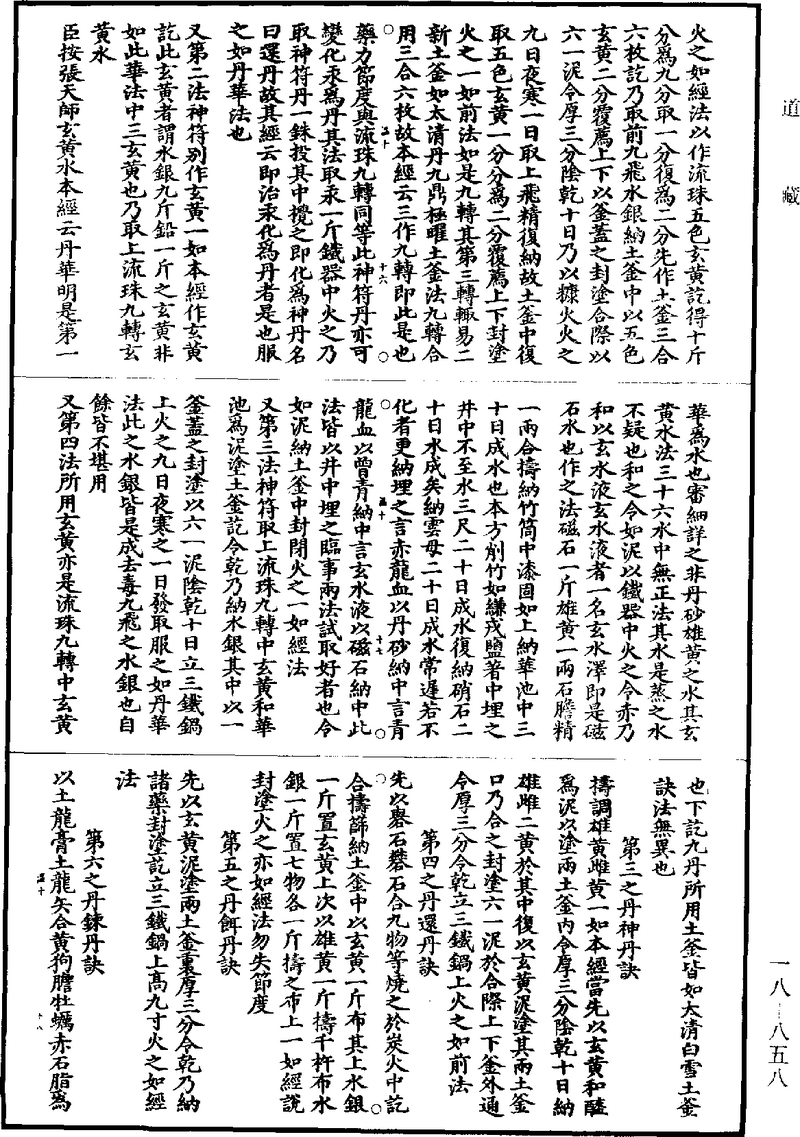 道藏
火之如經法以作流珠五色玄黃訖得十斤
分爲九分取一分復爲二分先作土釜三合
六枚訖乃取前九飛水銀納土釜中以五色
玄黃二分覆薦上下以釜蓋之封塗合際以
六一泥令厚三分陰乾十日乃以糠火火之
九日夜寒一日取上飛精復納故土釜中復
取五色玄黃一分分爲二分覆薦上下封塗
火之一如前法如是九轉其第三轉輒易二
新土釜如太清丹九鼎極曜土釜法九轉合
用三合六枚故本經云三作九轉即此是也
藥力節度與流珠九轉同等此神符丹亦可
變化汞爲丹其法取汞一斤鐵器中火之乃
取神符丹一銖投其中攪之即化爲神丹名
曰還丹故其經云即治汞化爲丹者是也服
之如丹華法也
又第二法神符別作玄黃一如本經作玄黃
訖此玄黃者謂水銀九斤鉛一斤之玄黃非
如此華法中三玄黃也乃取上流珠九轉玄
黃水
臣按張天師玄黃水本經云丹華明是第一
華爲水也審細詳之非丹砂雄黃之水其玄
黃水法三十六水中無正法其水是蒸之水
不疑也和之令如泥以鐵器中火之令赤乃
和以玄水液玄水液者一名玄水澤即是磁
石水也作之法磁石一斤雄黃一兩石膽精
一兩合擣納竹筒中漆固如上納華池中三
十日成水也本方削竹如縑戎鹽著中埋之
井中不至水三尺二十日成水復納硝石二
十日水成矣納雲母二十日成水常遲若不
化者更納埋之言赤龍血以丹砂納中言青
龍血以曾青納中言玄水液以磁石納中此
法皆以井中埋之臨事兩法試取好者也令
如泥納土釜中封閉火之一如經法
又第三法神符取上流珠九轉中玄黃和華
池爲泥塗土釜訖令乾乃納水銀其中以一
釜蓋之封塗以六一泥陰乾十日立三鐵鍋
上火之九日夜寒之一日發取服之如丹華
法此之水銀皆是成去毒九飛之水銀也自
餘皆不堪用
又第四法所用玄黃亦是流珠九轉中玄黃
也下訖九丹所用土釜皆如太清白雪土釜
訣法無異也
第三之丹神丹訣
擣調雄黃雌黃一如本經當先以玄黃和醯
爲泥以塗兩土釜內令厚三分陰乾十日納
雄雌二黃於其中復以玄黃泥塗其兩土釜
口乃合之封塗六一泥於合際上下釜外通
令厚三分令乾立三鐵鍋上火之如前法
第四之丹還丹訣
先以礜石礬石合九物等燒之於炭火中訖
合擣篩納土釜中以玄黃一斤布其上水銀
一斤置玄黃上次以雄黃一斤擣千杵布水
銀一斤置七物各一斤擣之布上一如經說
封塗火之亦如經法勿失節度
第五之丹餌丹訣
先以玄黃泥塗兩土釜裏厚三分令乾乃納
諸藥封塗訖立三鐵鍋上高九寸火之如經
法
第六之丹鍊丹訣
以土龍膏土龍矢合黃狗膽牡蠣赤石脂爲
一八–八五八